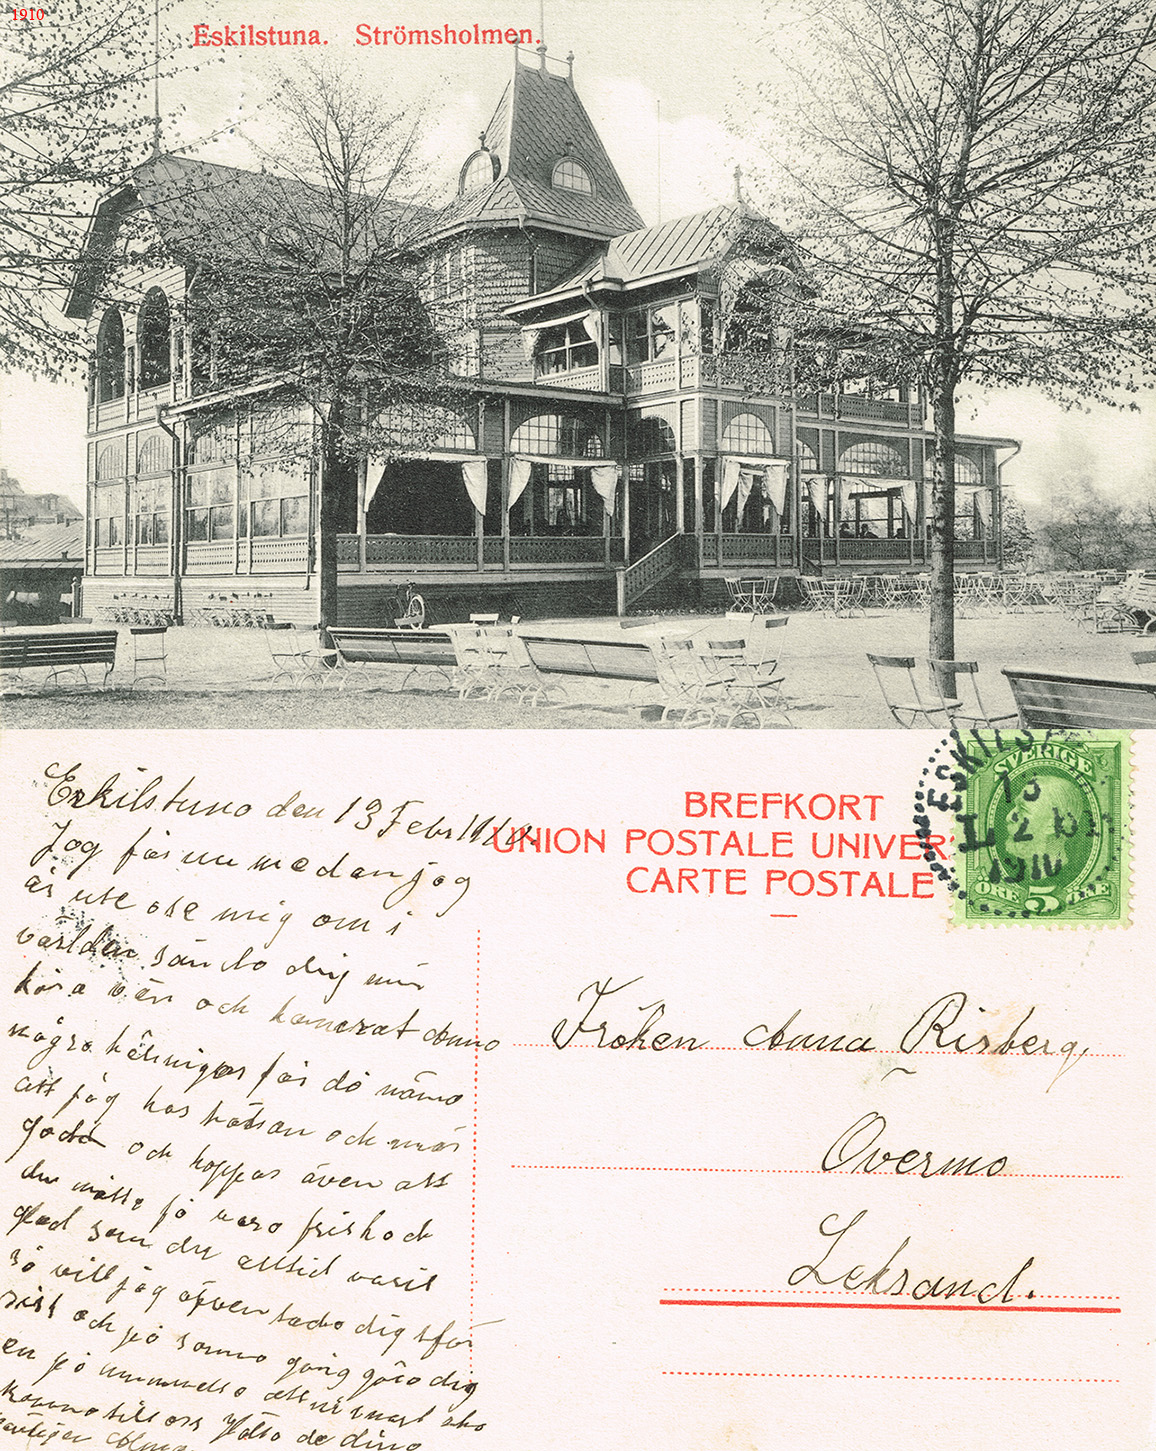 1910
Eskilstuna. Strömsholmen.
Eskilstuna den 13 Febr 1910.
Jag får nu medan jag
är ute ose mig om i
världen sända dig min
kära vän och kamerat Anna
några hälsningar får då nämna
att jag har hälsan och mår
goda och hoppas även att
du måtte få vara frisk och
glad som du alltid varit
så vill jag äfven tacka dig för
sist och på samma gång göra dig
en på minnnelse att ni snart ska
komma till oss Hälsa de dina
BREFKORT
UNION POSTALE UNIVER
CARTE POSTALE
SVERIGE
5
ÖRE
ESKILST
13
2 10
1910
Fröken Anna Risberg
Overmo
Leksand.